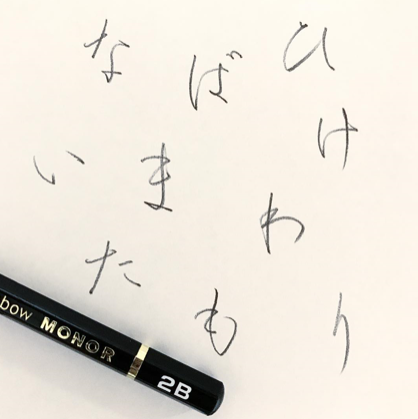 ひ
け
わ
り
ば
ま
も
な
い
た
bow MONOR
2B